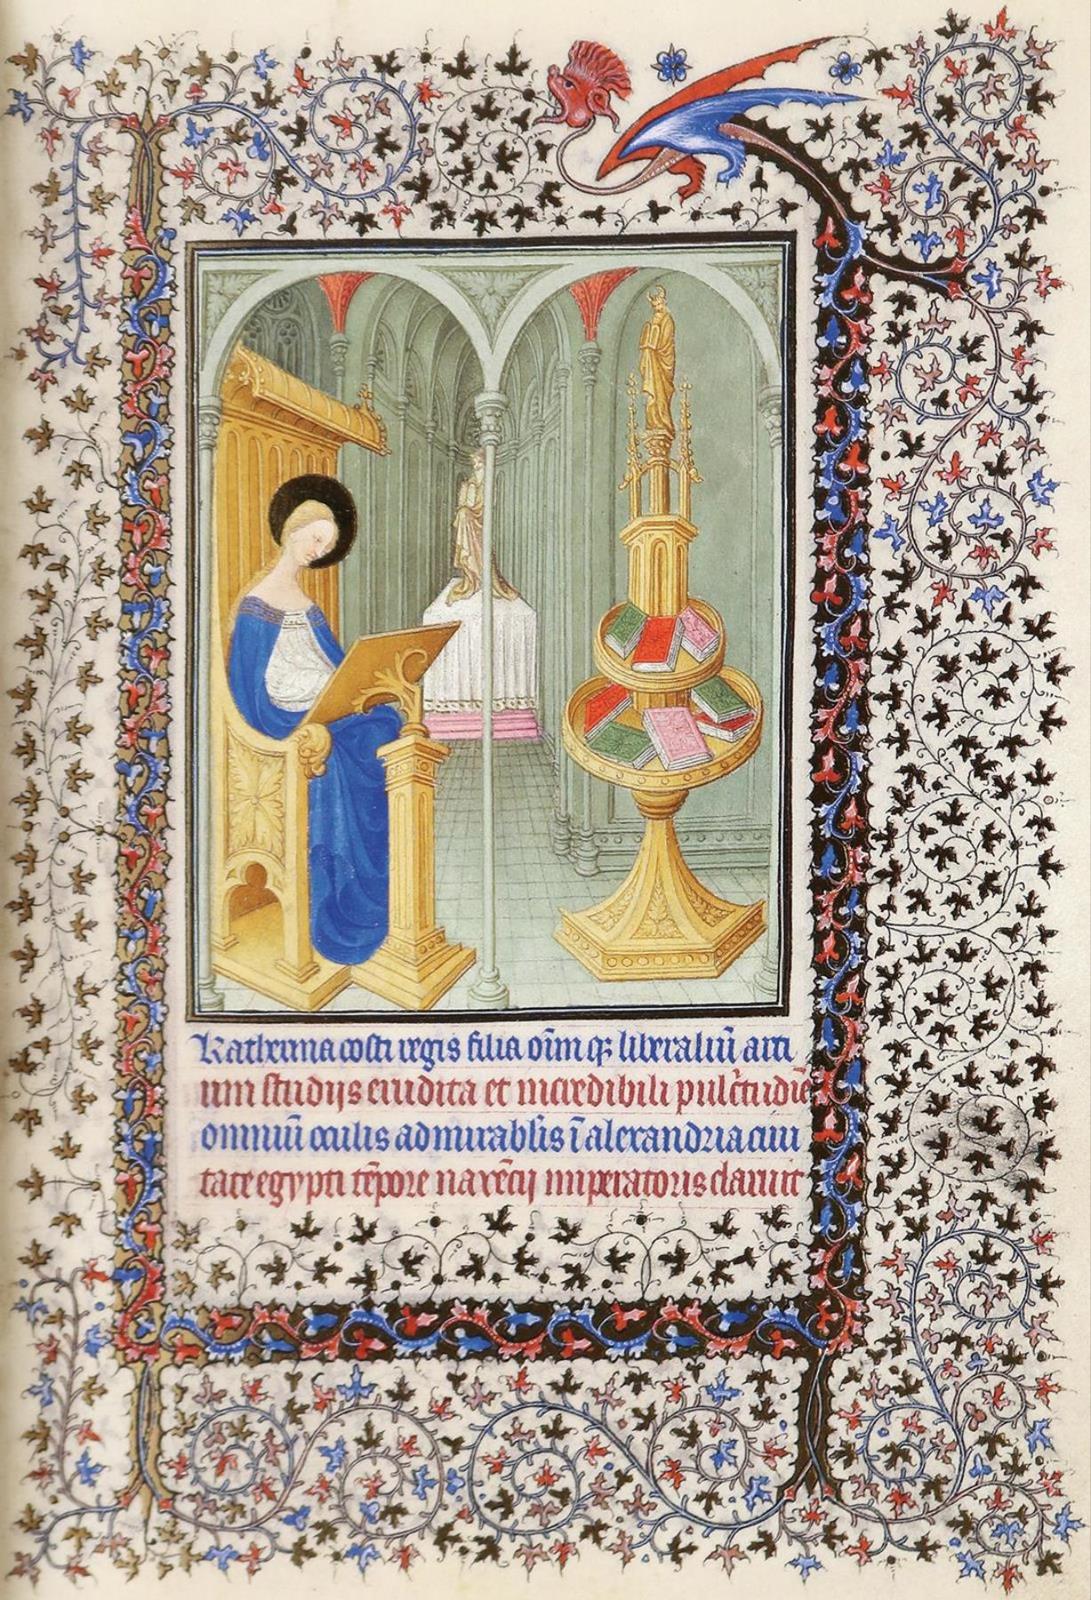 Katherina costi regis filia oīm qꝫ liberaliū arti
um studijs erudita et incredibili pulcītudīe
omniū oculis admirabl̄is ī alexandria ciui
tate egypti tēpore maxēcij imperatoris claruit